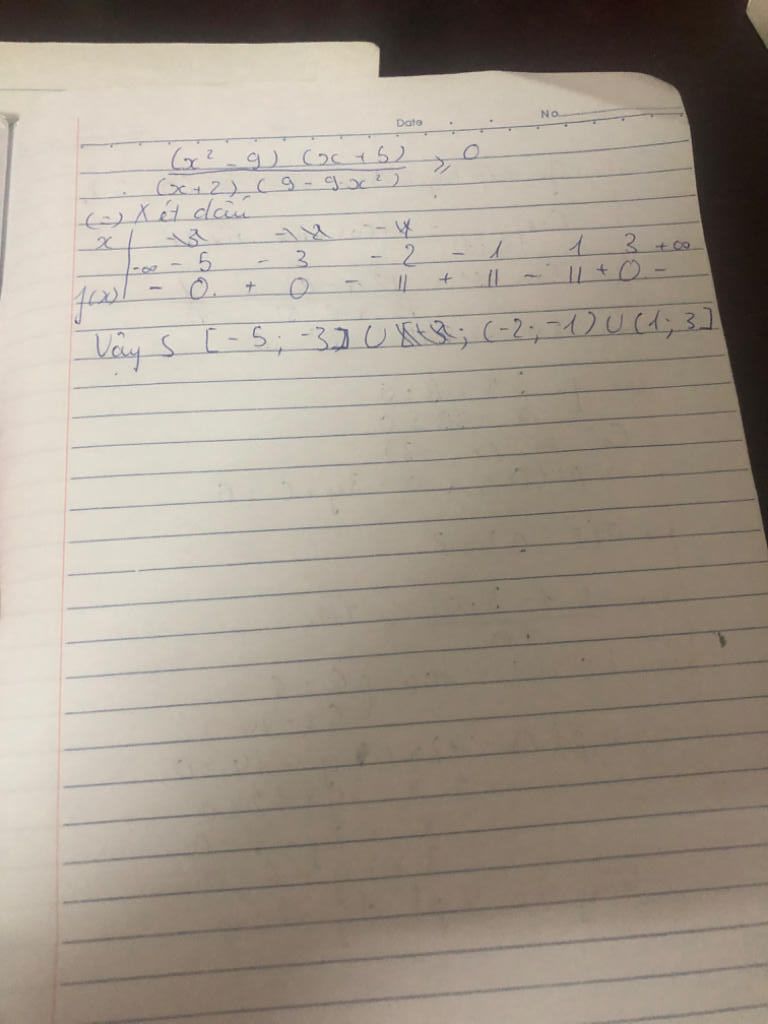 Date No
(x² - 9) (x + 5)
≥ 0
(x+2) (9 - 9x²)
(=) Xét dấu
x -∞ - 5 - 3 - 2 - 1 1 3 +∞
f(x) - 0 + 0 - || + || - || + 0 -
Vậy S [-5; -3] ∪ ; (-2; -1) ∪ (1; 3]